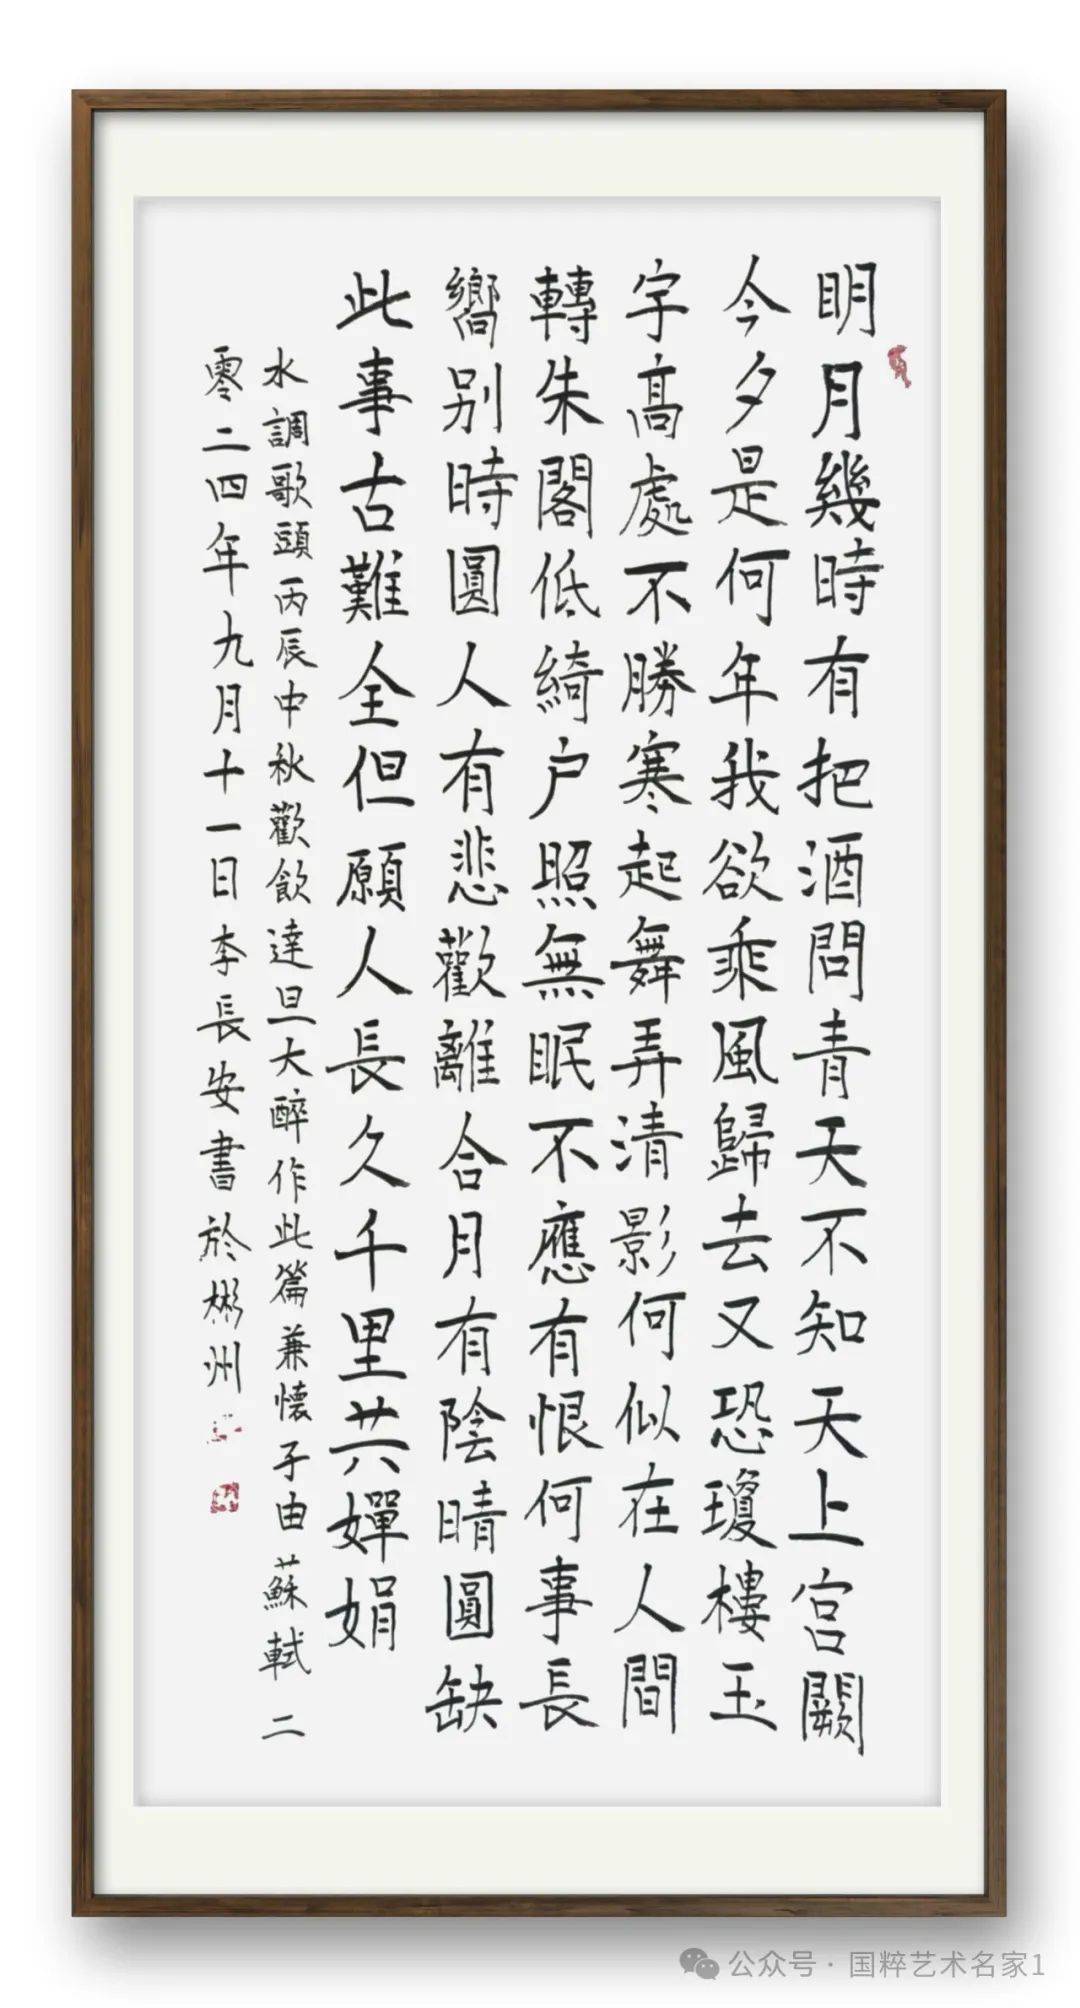 明月幾時有把酒問青天不知天上宮闕
今夕是何年我欲乘風歸去又恐瓊樓玉
宇高處不勝寒起舞弄清影何似在人間
轉朱閣低綺户照無眠不應有恨何事長
嚮别時圓人有悲歡離合月有陰晴圓缺
此事古難全但願人長久千里共嬋娟
水調歌頭丙辰中秋歡飲達旦大醉作此篇兼懷子由蘇軾二
零二四年九月十一日李長安書於彬州
公众号·国粹艺术名家1